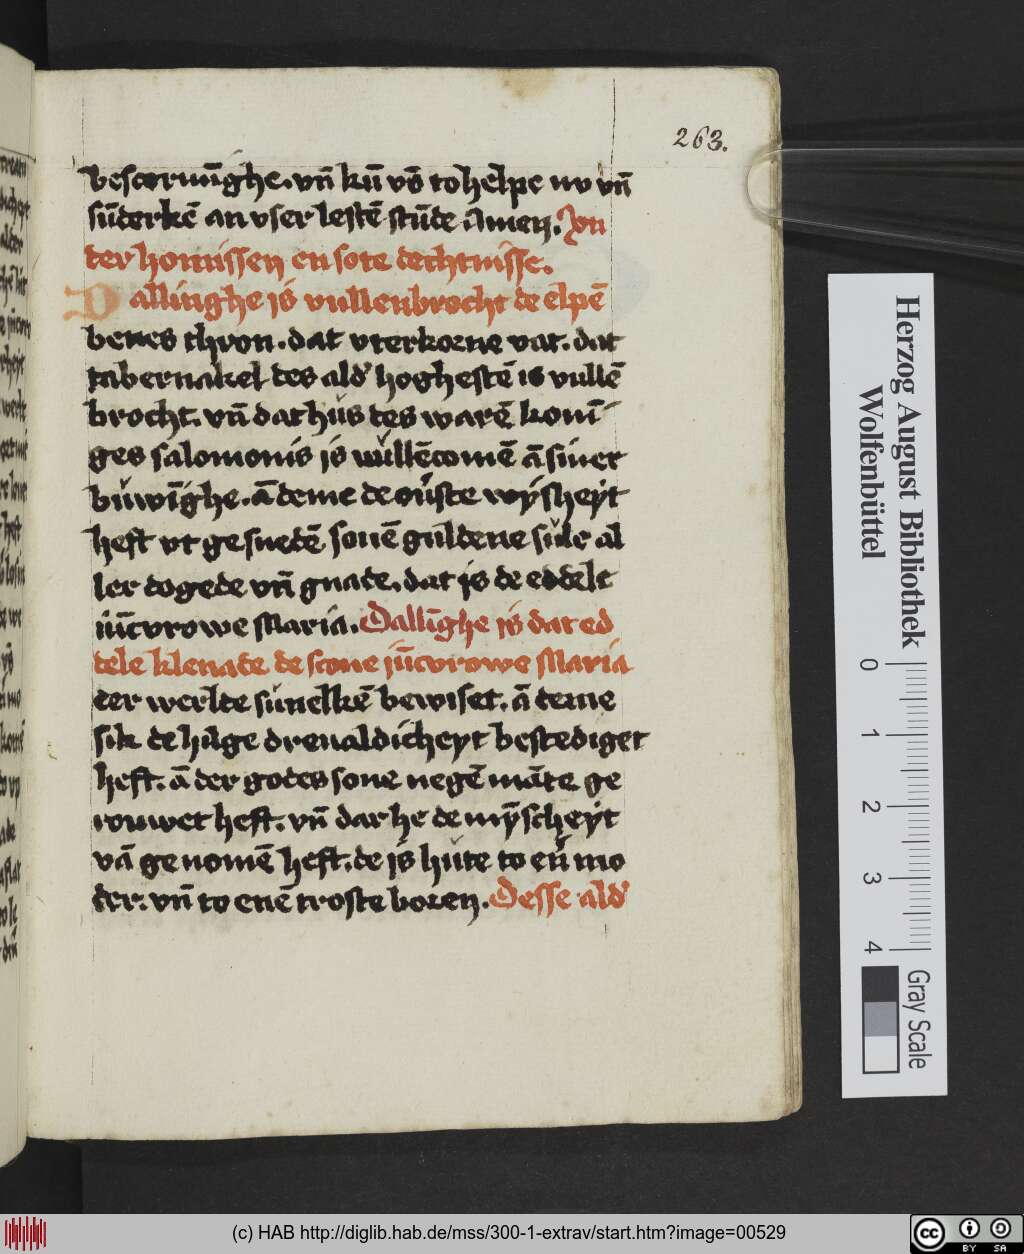 263.
bescermīghe. vn̄ kū vō to helpe nv vn̄
sūderkē an vser lestē stūde Amen. Un
der homissen en sote dechtnisse.
Dallinghe is vullenbrocht de elpē
benes thron. dat vterkorne vat. dat
tabernakel des ald' hoghestē is vullē
brocht. vn̄ dat hus des warē konī
ges salomonis is wullēcomē ā siner
buwīghe. ā deme de ouste wysheyt
heft vt ge snedē souē guldene sule al
ler dogede vn̄ gnade. dat is de eddele
iūcvrowe Maria. Dallīghe is dat ed
dele klenade de scone iūcvrowe Maria
der werlde sūnelkē bewiset. ā deme
sik de hilge dreualdicheyt bestediget
heft. ā der godes sone negē māte ge
rouwet heft. vn̄ dar he de mȳscheyt
vā ge nomē heft. de is hute to en mo
der. vn̄ to enē troste boren. Desse ald'
Herzog August Bibliothek
Wolfenbüttel
0 1 2 3 4
Gray Scale
(c) HAB http://diglib.hab.de/mss/300-1-extrav/start.htm?image=00529
cc BY SA